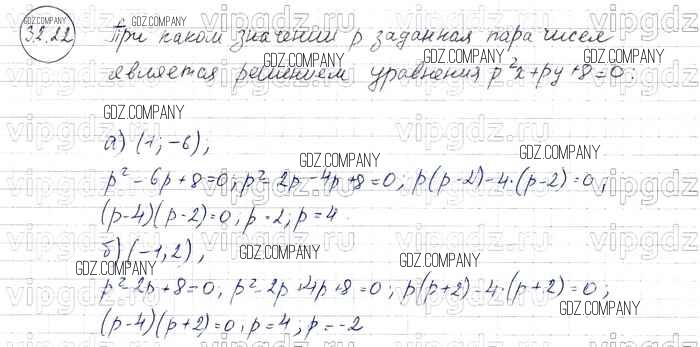 GDZ.COMPANY
32.22 При каком значении p заданная пара чисел
GDZ.COMPANY GDZ.COMPANY GDZ.COMPANY
является решением уравнения p²x+py+8=0:
GDZ.COMPANY
а) (1; -6);
GDZ.COMPANY GDZ.COMPANY
p²-6p+8=0; p²-2p-4p+8=0; p(p-2)-4·(p-2)=0;
GDZ.COMPANY
(p-4)(p-2)=0, p=2; p=4.
б) (-1,2);
GDZ.COMPANY GDZ.COMPANY
p²-2p+8=0, p²-2p+4p+8=0; p(p+2)-4·(p+2)=0;
GDZ.COMPANY
(p-4)(p+2)=0, p=4; p=-2
vipgdz.ru